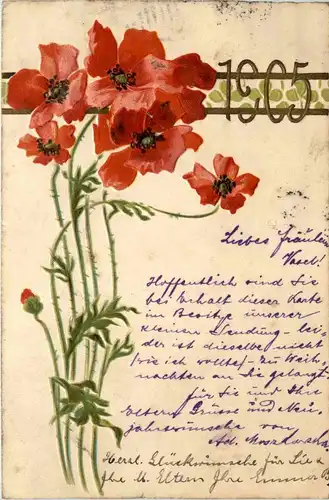 1905
Liebes Fräulein
Vasel!
Hoffentlich sind Sie
bei Erhalt dieser Karte
im Besitze unserer
kleinen Sendung - lei
der ist dieselbe nicht
(wie ich wollte) - zu Weih
nachten an Sie gelangt
für Sie und Ihre
Eltern Grüsse und Neu
jahrswünsche von
Ad.
Herzl. Glückwünsche für Sie &
Ihre l. Eltern Ihre